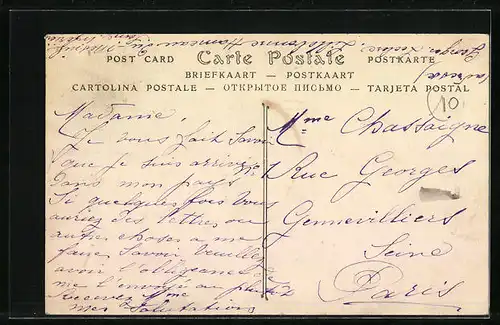 POST CARD Carte Postale POSTKARTE
BRIEFKAART — POSTKAART
CARTOLINA POSTALE — ОТКРЫТОЕ ПИСЬМО — TARJETA POSTAL
10
Madame,
Je vous fait Savoir
que je suis arrivez
dans mon pays
Si quelques fois vous
auriez des lettres ou
autres choses a me
faire Savoir veuillez
avoir l'obligeance de
me l'envoyé au plutôt
Recevez Mme
mes Salutations
Mme Chassaigne
Rue Georges
Gennevilliers
Seine
Paris